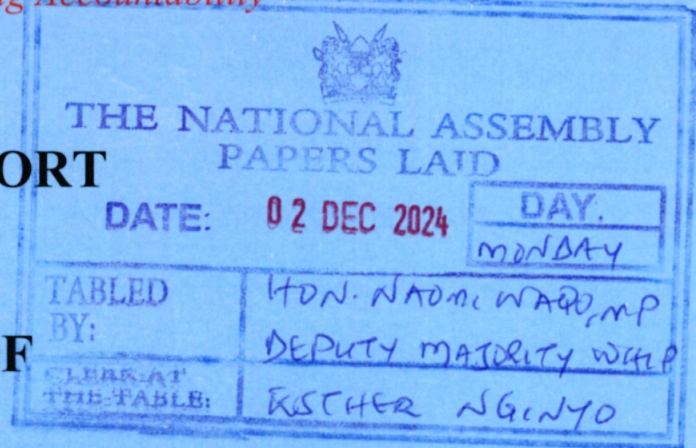 g Accountability
THE NATIONAL ASSEMBLY
PAPERS LAID
ORT
DATE: 02 DEC 2024 DAY.
MONDAY
TABLED BY: HON. NAOMI WAQO, MP
DEPUTY MAJORITY WHIP
F
CLERK AT THE-TABLE: ESTHER NGINYO